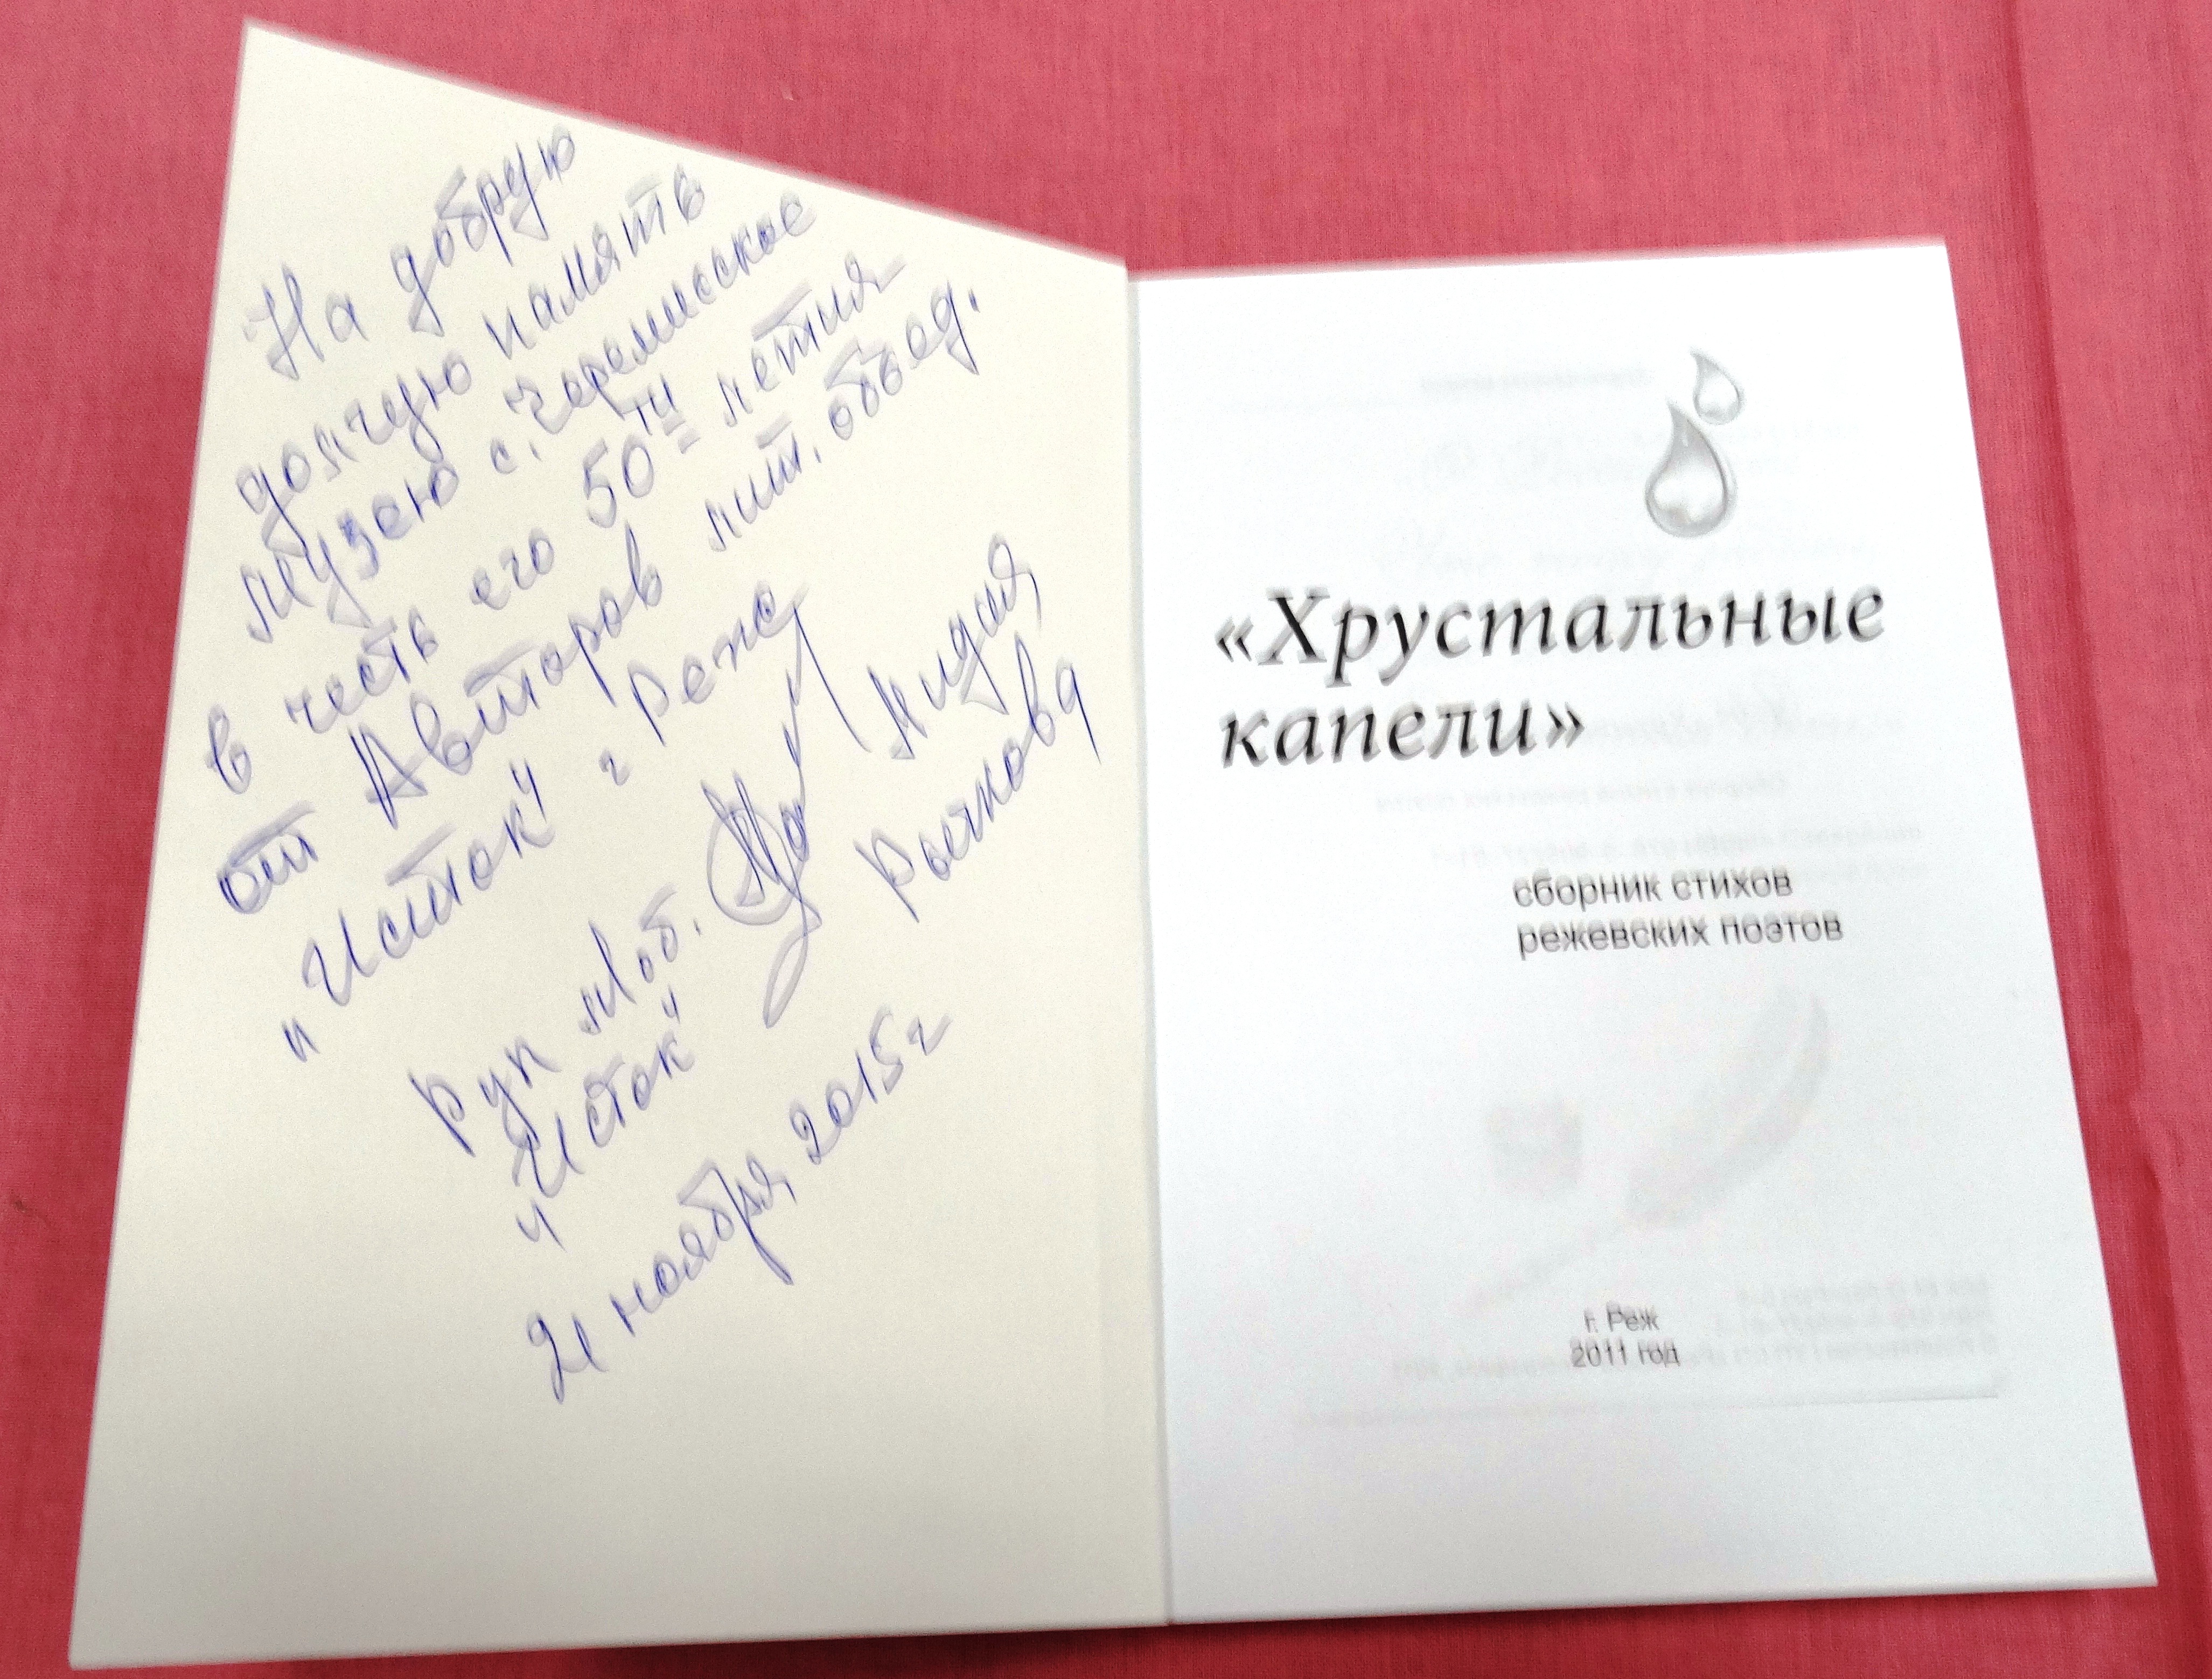 На добрую
долгую память
музею с. Черемисское
в честь его 50ти летия
от Авторов лит. объед.
"Исток" г Режа
Лидия
Рычкова
рук об.
"Исток"
21 ноября 2015г
«Хрустальные
капели»
сборник стихов
режевских поэтов
г. Реж
2011 год